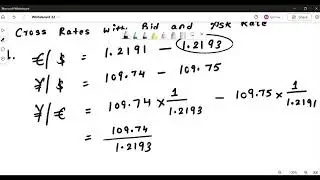 Microsoft Whiteboard
Whiteboard 32
Cross Rates with Bid and Ask Rate
1. €/$ = 1.2191 — 1.2193
¥/$ = 109.74 — 109.75
¥/€ = 109.74 × 1/1.2193 — 109.75 × 1/1.2191
= 109.74/1.2193